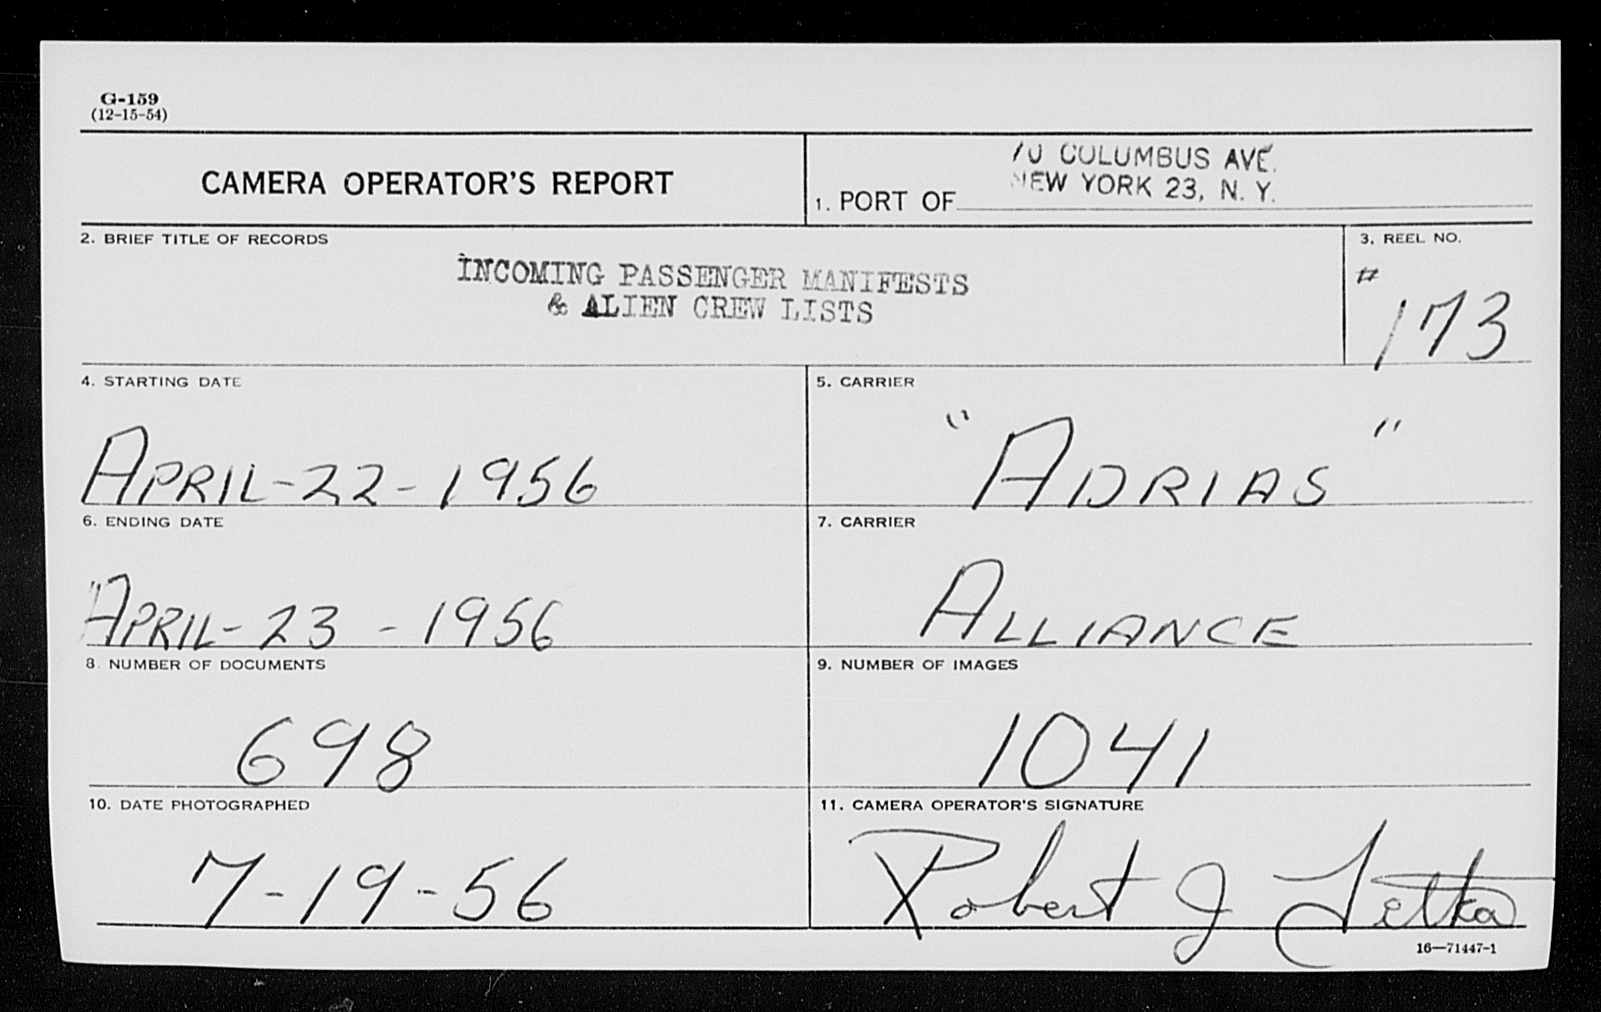 G-159
(12-15-54)
CAMERA OPERATOR'S REPORT
1. PORT OF
70 COLUMBUS AVE.
NEW YORK 23, N. Y.
2. BRIEF TITLE OF RECORDS
INCOMING PASSENGER MANIFESTS
& ALIEN CREW LISTS
3. REEL NO.
# 173
4. STARTING DATE
APRIL-22-1956
5. CARRIER
"ADRIAS"
6. ENDING DATE
APRIL-23-1956
7. CARRIER
ALLIANCE
8. NUMBER OF DOCUMENTS
698
9. NUMBER OF IMAGES
1041
10. DATE PHOTOGRAPHED
7-19-56
11. CAMERA OPERATOR'S SIGNATURE
Robert J
16—71447-1